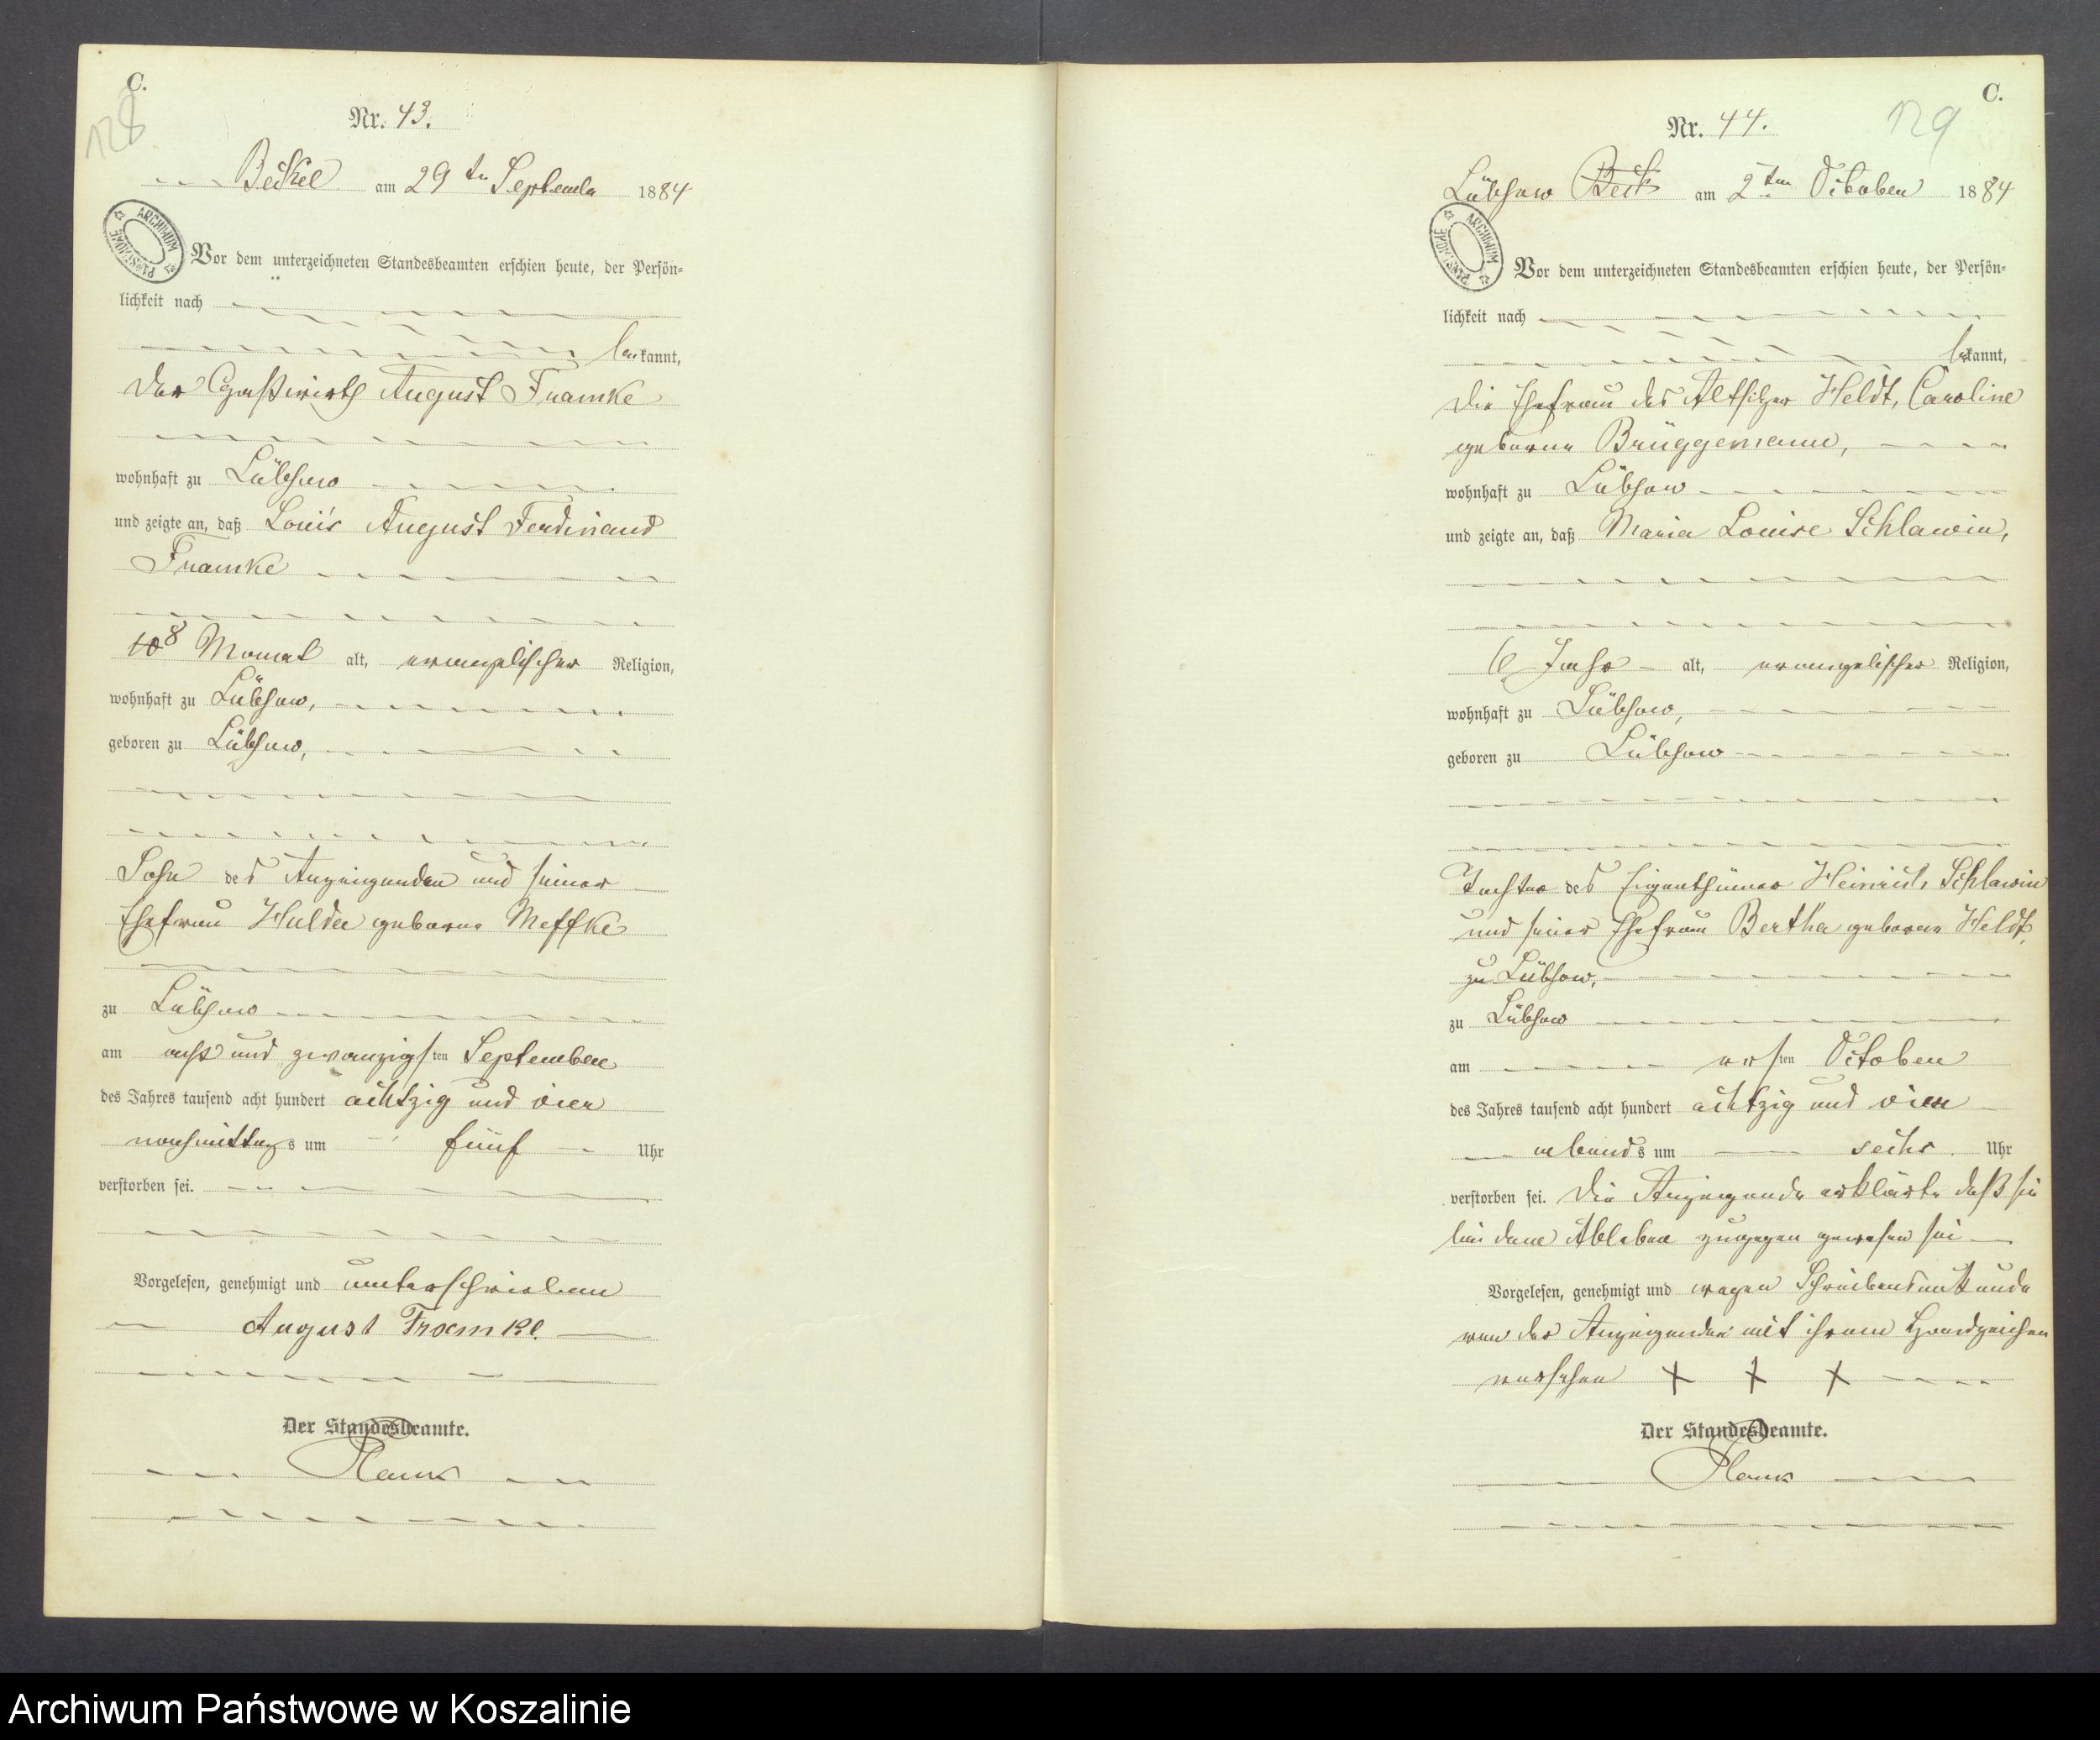 C.
128
Nr. 43.
Beckel am 29 ten September 1884
ARCHIWUM PAŃSTWOWE
Vor dem unterzeichneten Standesbeamten erschien heute, der Persön-
lichkeit nach
bekannt,
der Gastwirth August Framke
wohnhaft zu Lübsow
und zeigte an, daß Louis August Ferdinand
Framke
8 Monat alt, evangelischer Religion,
wohnhaft zu Lübsow,
geboren zu Lübsow,
Sohn des Anzeigenden und seiner
Ehefrau Hulda geborne Meffke
zu Lübsow
am acht und zwanzigsten September
des Jahres tausend acht hundert achtzig und vier
nachmittags um fünf Uhr
verstorben sei.
Vorgelesen, genehmigt und unterschrieben
August Framke
Der Standesbeamte.
C.
129
Nr. 44.
Lübsow am 2ten October 1884
ARCHIWUM PAŃSTWOWE
Vor dem unterzeichneten Standesbeamten erschien heute, der Persön-
lichkeit nach
bekannt,
die Ehefrau des Altsitzer Heldt, Caroline
geborne Brüggemann,
wohnhaft zu Lübsow
und zeigte an, daß Maria Louise Schlawin,
6 Jahr alt, evangelischer Religion,
wohnhaft zu Lübsow,
geboren zu Lübsow
Tochter des Eigenthümer Heinrich Schlawin
und seiner Ehefrau Bertha geborne Heldt,
zu Lübsow,
zu Lübsow
am ersten October
des Jahres tausend acht hundert achtzig und vier
abends um sechs Uhr
verstorben sei. Die Anzeigende erklärte daß sie
bei dem Ableben zugegen gewesen sei
Vorgelesen, genehmigt und wegen Schreibensunkunde
von der Anzeigenden mit ihrem Handzeichen
versehen + + +
Der Standesbeamte.
Archiwum Państwowe w Koszalinie